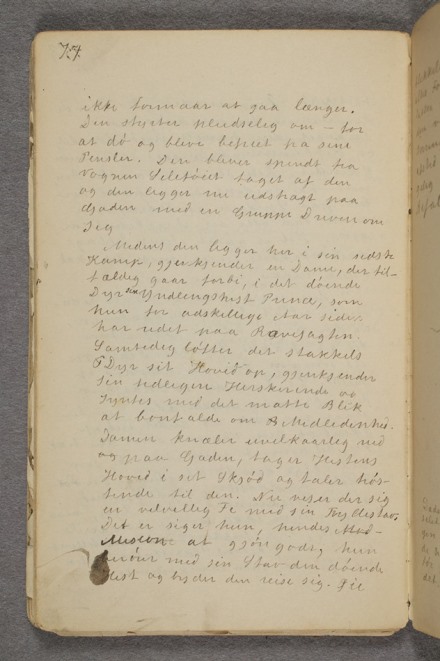 74.
ikke formaar at gaa længer.
Den styrter pludselig om – for
at dø og blive befriet fra sine
Pensler. Den bliver spændt fra
Vognen Seletøiet taget af den
og den ligger nu udstragt paa
Gaden med en Gruppe Drivere om
sig
Medens den ligger her i sin sidste
Kamp, gjenkjender en Dame, der til-
fældig gaar forbi, i det døende
Dyr sin Yndlingshest Prince, som
hun for adskillige Aar siden
har redet paa Rævejagten.
Samtidig løfter det stakkels
Dyr sit Hovid op, gjenkjender
sin tidligere Herskerinde og
syntes med det matte Blik
at bønfalde om Medlidenhed.
Damen knæler uvilkaarleg ned
og paa Gaden, tager Hestens
Hovid i sit Skjød og taler trøs-
tende til den. Nu viser der sig
en velvillig Fe med sin Trylle stav.
Det er siger hun, hendes
Mission at gjøre godt, hun
berører med sin Stav den døende
Hest og byder den reise sig.